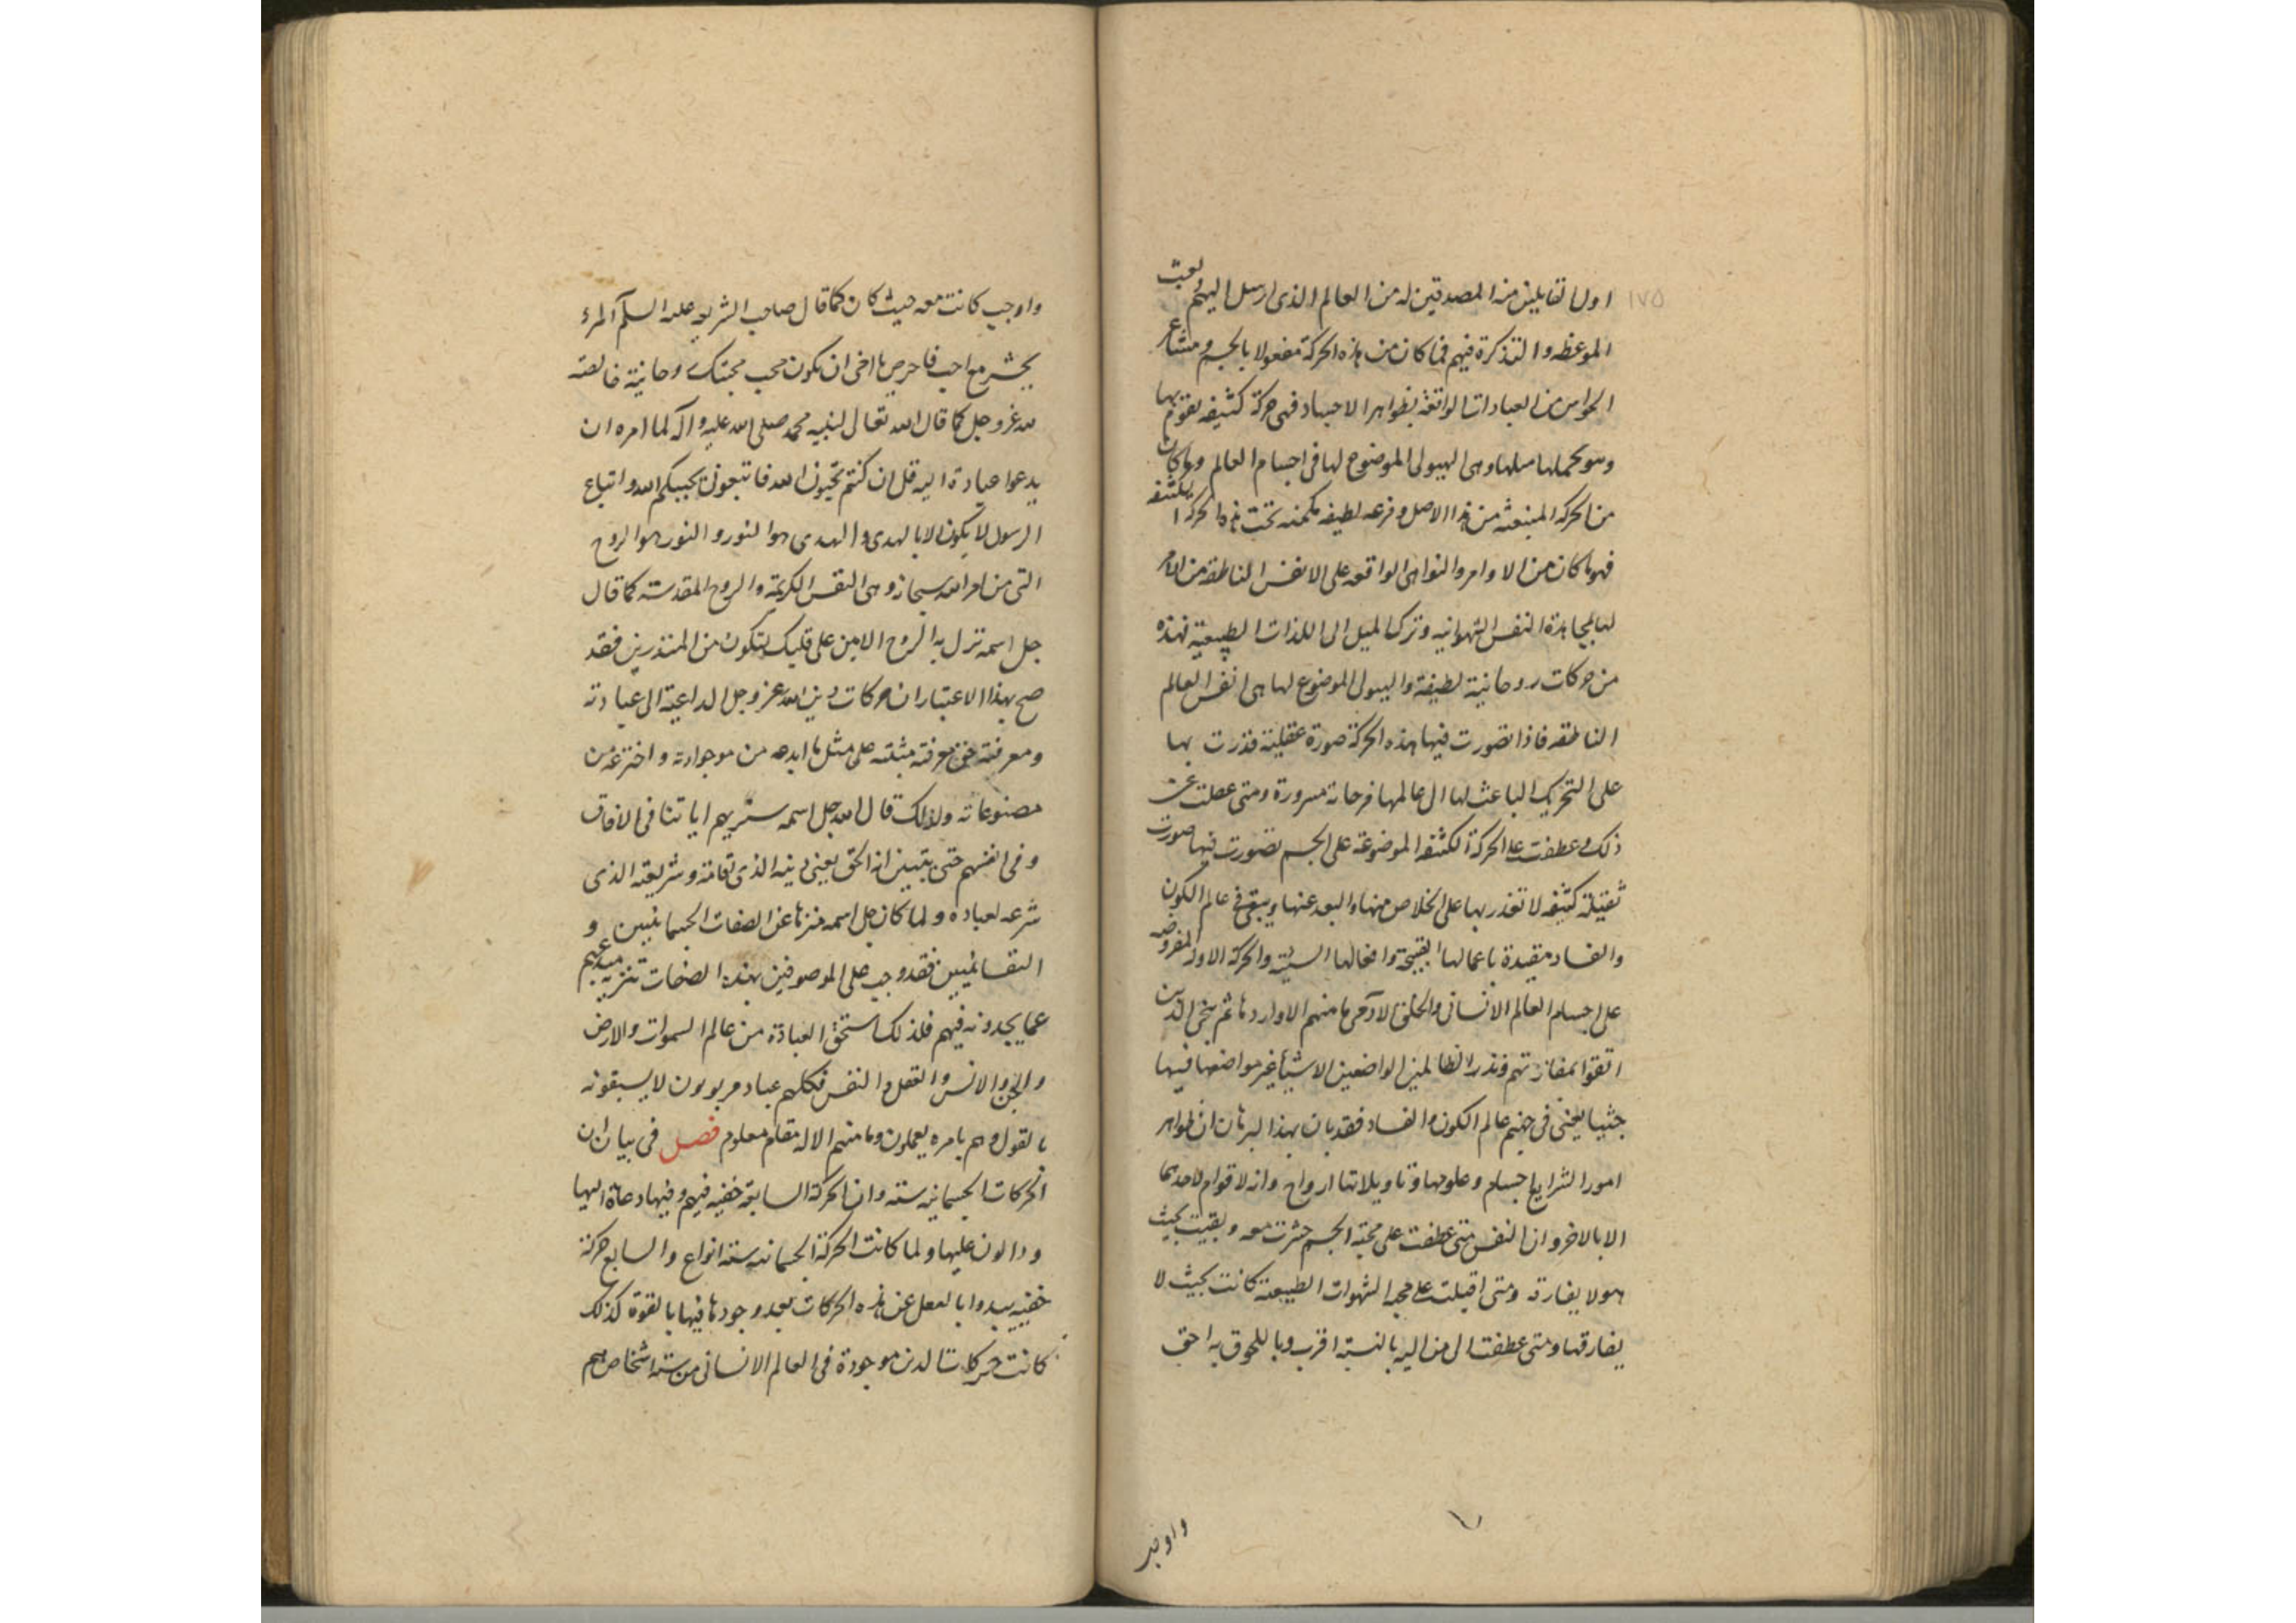 ١٧٥
اول القابلين من المصدقين له من العالم الذى ارسل اليهم
الموعظه والتذكرة فيهم فما كان من هذه الحركة مفعولا بالجسم ومشاعر
الحواس من العبادات الواقعة بظواهر الاجساد فهى حركة كثيفه تقوم بها
وهى الهيولى الموضوع لها فى اجسام العالم وما كان
من الحركه المنبعثه من هذا الاصل وفرعه لطيفه مكمنه تحت هذه الحركه الكثيفه
فهو ما كان من الاوامر والنواهى الواقعه على الانفس الناطقه من الامر
لها بمجاهدة النفس الشهوانيه وترك الميل الى اللذات الطبيعية فهذه
من حركات روحانية لطيفة والهيولى الموضوع لها هى انفس العالم
الناطقه فاذا تصورت فيها هذه الحركة صورة عقلية قدرت بها
على التحريك الباعث لها الى عالمها فرحانة مسرورة ومتى عطلت عن
ذلك وعطفت على الحركة الكثيفه الموضوعة على الجسم تصورت فيها صورت
ثقيلة كثيفه لا تقدر بها على الخلاص منها والبعد عنها ويبقى فى عالم الكون
والفساد مقيدة باعمالها القبيحة وافعالها السيئة والحركة الاولة المفروضه
على اجسام العالم الانسانى والخلق لا منهم الا واردها ثم ينجى الذين
اتقوا بمفازتهم ونذر الظالمين الواضعين الاشيا غير مواضعها فيها
جثيا يعنى فى جهنم عالم الكون والفساد فقد بان بهذا البرهان ان ظواهر
امور الشرايع اجسام وعلومها وتاويلاتها ارواح وانه لا قوام لاحدهما
الا بالاخر وان النفس متى عطفت على محبة الجسم حشرت معه وبقيت بحيث
هو لا يفارقه ومتى اقبلت على محبه الشهوات الطبيعية كانت بحيث لا
يفارقها ومتى عطفت الى من اليه بالنسبة اقرب وباللحوق به احق
واوجب
واوجب كانت معه حيث كان كما قال صاحب الشريعه عليه السلم المرء
يحشر مع احب فاحرص يا اخى ان تكون محب محبتك روحانية خالصة
لله عز وجل كما قال الله تعالى لنبيه محمد صلى الله عليه وآله لما امره ان
يدعوا عباده اليه قل ان كنتم تحبون الله فاتبعونى يحببكم الله واتباع
الرسول لا يكون الا بالهدى والهدى هو النور والنور هو الروح
التى من امر الله سبحانه وهى النفس الكريمة والروح المقدسة كما قال
جل اسمه نزل به الروح الامين على قلبك لتكون من المنذرين فقد
صح بهذا الاعتبار ان حركات دين الله عز وجل الداعية الى عبادته
ومعرفته حق معرفته مثبتة على مثل ما ابدعه من موجوداته واخترعه من
مصنوعاته ولذلك قال الله جل اسمه سنريهم اياتنا فى الافاق
وفى انفسهم حتى يتبين انه الحق يعنى دينه الذى اقامه وشريعته الذى
شرعه لعباده ولما كان جل اسمه منزها عن الصفات الجسمانيين و
النفسانيين فقد وجب على الموصوفين بهذه الصفات تنزيه مبدعهم
عما يجدونه فيهم فلذلك استحق العبادة من عالم السموات والارض
والجن والانس والعقل والنفس فكلهم عباد مربوبون لا يسبقونه
بالقول وهم بامره يعملون وما منهم الا له مقام معلوم فصل فى بيان ان
الحركات الجسمانيه سته وان الحركة السابعة خفيه فيهم وفيها دعاة اليها
ودالون عليها ولما كانت الحركة الجسمانيه سته انواع والسابع حركة
خفييه يبدوا بالفعل عن هذه الحركات بعد وجودها فيها بالقوة كذلك
كانت حركات الدين موجودة فى العالم الانسانى من سته اشخاص هم